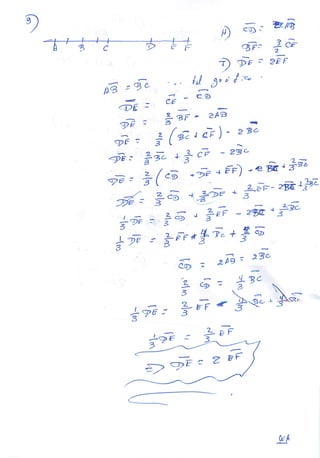 3)
H) CD = 2AB
A B C D E F
BF = 3/2 CE
T) DE = 2EF
AB = BC
DE = CE - CD
DE = 2/3 BF - 2AB
DE = 2/3 (BC + CF) - 2BC
DE = 2/3 BC + 2/3 CF - 2BC
DE = 2/3 (CD + DE + EF) - 2BC + 2/3 BC
DE = 2/3 CD + 2/3 DE + 2/3 EF - 2BC + 2/3 BC
1/3 DE = 2/3 CD + 2/3 EF - 2BC + 2/3 BC
1/3 DE = 2/3 EF - 4/3 BC + 2/3 CD
CD = 2AB = 2BC
2/3 CD = 4/3 BC
1/3 DE = 2/3 EF - 4/3 BC + 4/3 BC
1/3 DE = 2/3 EF
=> DE = 2 EF